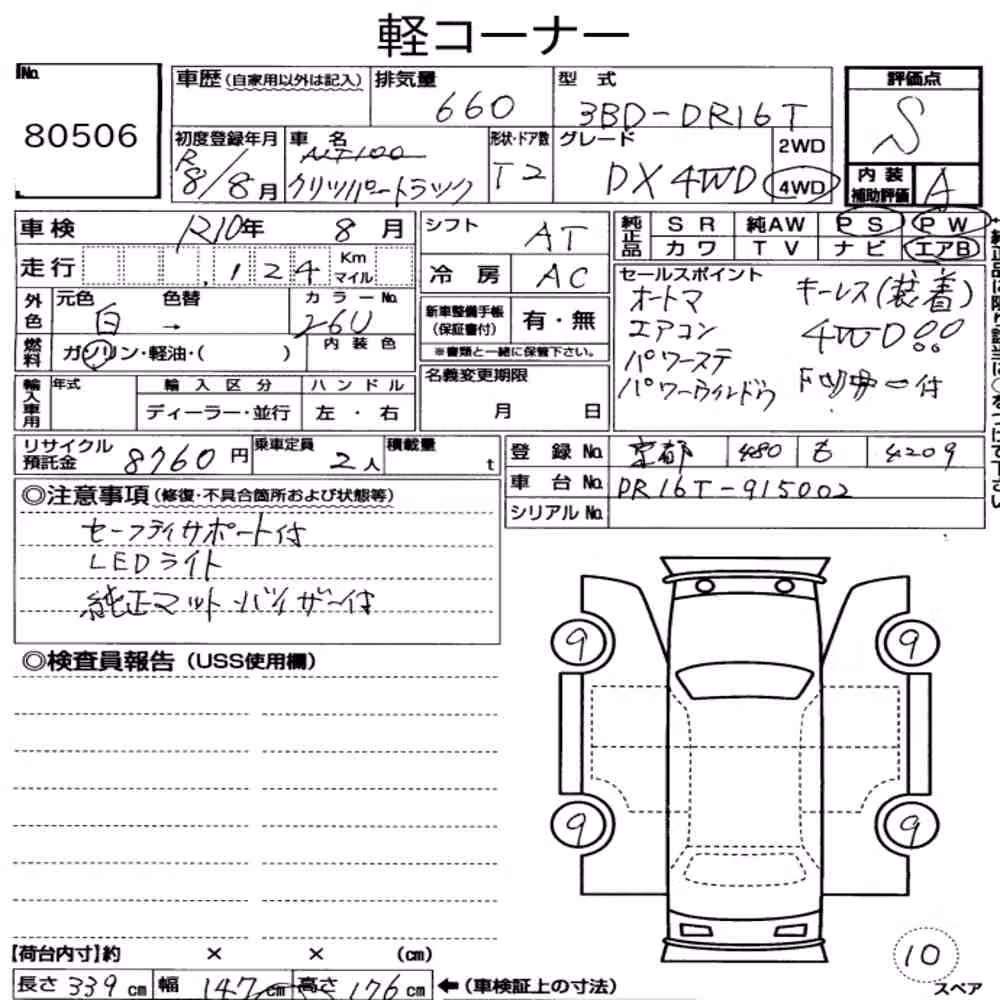 軽コーナー
No. 80506
車歴(自家用以外は記入)
排気量 660
型式 3BD-DR16T
評価点 S
初度登録年月 R8/8月
車名 クリッパートラック
形状・ドア数 T2
グレード DX 4WD
2WD
4WD
内装補助評価 A
車検 R10年 8月
走行 124 Km マイル
シフト AT
冷房 AC
純正品 SR 純AW PS PW
カワ TV ナビ エアB
外色 元色 白 → 色替
カラーNo. 26U
燃料 ガソリン・軽油・( )
内装色
新車整備手帳(保証書付) 有・無
※書類と一緒に保管下さい。
セールスポイント
オートマ キーレス(装着)
エアコン 4WD!!
パワーステ
パワーウィンドウ
輸入車用 年式 輸入区分 ハンドル
ディーラー・並行 左・右
名義変更期限
月 日
リサイクル預託金 8760円
乗車定員 2人
積載量 t
登録No. 京都 480 を 4209
車台No. DR16T-915002
シリアルNo.
◎注意事項(修復・不具合箇所および状態等)
セーフティサポート付
LEDライト
純正マット・バイザー付
◎検査員報告(USS使用欄)
9 9
9 9
10
スペア
【荷台内寸】約 × × (cm)
長さ 339cm 幅 147cm 高さ 176cm ←(車検証上の寸法)